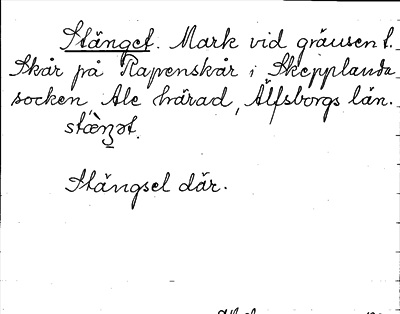 Stänget. Mark vid gränsen t.
Skår på Rapenskår i Skepplanda
socken, Ale härad, Älfsborgs län.
Stängsel där.